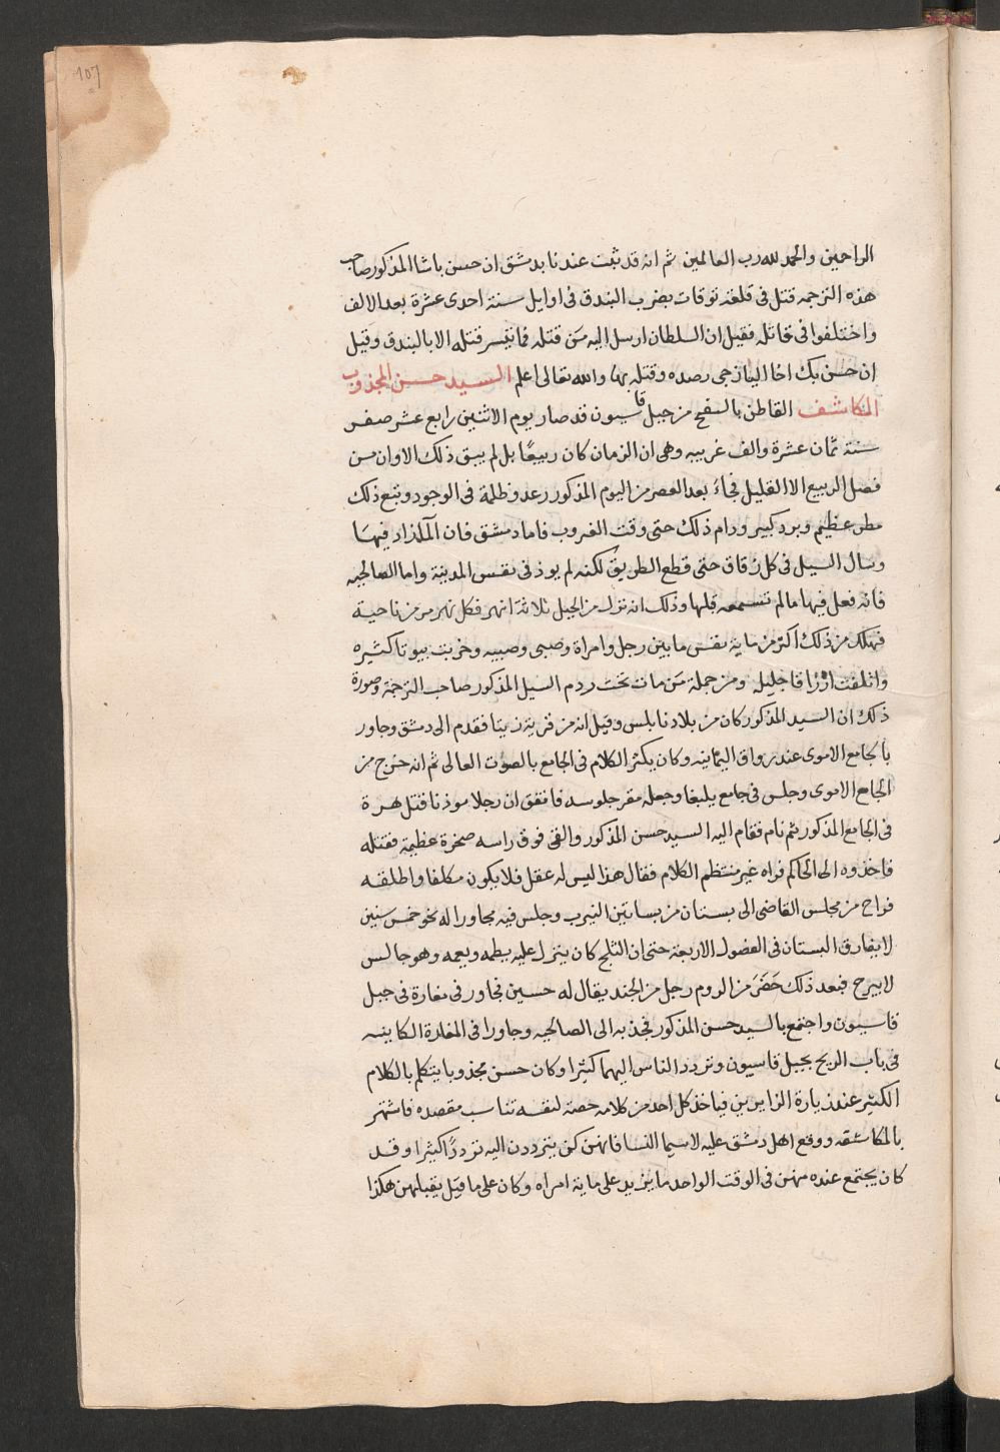 107
الراحمين والحمد لله رب العالمين ثم انه قد ثبت عندنا بدمشق ان حسن باشا المذكور صاحب
هذه الترجمه قتل فى قلعة توقات بضرب البندق فى اوايل سنة احدى عشرة بعد الالف
واختلفوا فى قاتله فقيل ان السلطان ارسل اليه من قتله فما تيسر قتله الا بالبندق وقيل
ان حسن بك اخا اليازجى رصده وقتله بها والله تعالى اعلم السيد حسن المجذوب
المكاشف القاطن بالسفح من جبل قاسيون قد صار يوم الاثنين رابع عشر صفر
سنة ثمان عشرة والف غريبه وهى ان الزمان كان ربيعًا بل لم يبق ذلك الاوان من
فصل الربيع الا القليل فجاء بعد العصر من اليوم المذكور رعد وظلمة فى الوجود وتبع ذلك
مطر عظيم وبرد كبير ودام ذلك حتى وقت الغروب فاما دمشق فان الما زاد فيها
وسال السيل فى كل زقاق حتى قطع الطريق لكنه لم يوذ فى نفس المدينة واما الصالحيه
فانه فعل فيها ما لم تسمعه قبلها وذلك انه نزل من الجبل ثلاثة انهر فكل نهر مر من ناحية
فهلك من ذلك اكثر من ماية نفس ما بين رجل وامراة وصبى وصبيه وخربت بيوتا كثيره
واتلفت ارزاقا جليله ومن جملة من مات تحت ردم السيل المذكور صاحب الترجمة وصورة
ذلك ان السيد المذكور كان من بلاد نابلس وقيل انه من قرية زيتا فقدم الى دمشق وجاور
بالجامع الاموى عند رواق اليمانيه وكان يكثر الكلام فى الجامع بالصوت العالى ثم انه خرج من
الجامع الاموى وجلس فى جامع يلبغا وجعله مقر جلوسه فاتفق ان رجلا موذنا قتل هرة
فى الجامع المذكور ثم نام فقام اليه السيد حسن المذكور والقى فوق راسه صخرة عظيمة فقتله
فاخذوه الى الحاكم فراه غير منتظم الكلام فقال هذا ليس له عقل فلا يكون مكلفا واطلقه
فراح من مجلس القاضى الى بستان من بساتين النيرب وجلس فيه مجاورا له نحو خمس سنين
لا يفارق البستان فى الفصول الاربعة حتى ان الثلج كان ينزل عليه يطمه ويعمه وهو جالس
لا يبرح فبعد ذلك حَضَرَ من الروم رجل من الجند يقال له حسين فجاور فى مغارة فى جبل
قاسيون واجتمع بالسيد حسن المذكور فجذبه الى الصالحيه وجاورا فى المغارة الكاينه
فى باب الريح بجبل قاسيون وتردد الناس اليهما كثيرا وكان حسن مجذوبا يتكلم بالكلام
الكثير عند زيارة الزايرين فياخذ كل احد من كلامه حصة لنفسه تناسب مقصده فاشتهر
بالمكاشفه ووقع اهل دمشق عليه لا سيما النسا فانهن كن يترددن اليه ترددًا كثيرا وقد
كان يجتمع عنده منهن فى الوقت الواحد ما يزيد على ماية امراه وكان على ما قيل يقبلهن هكذا